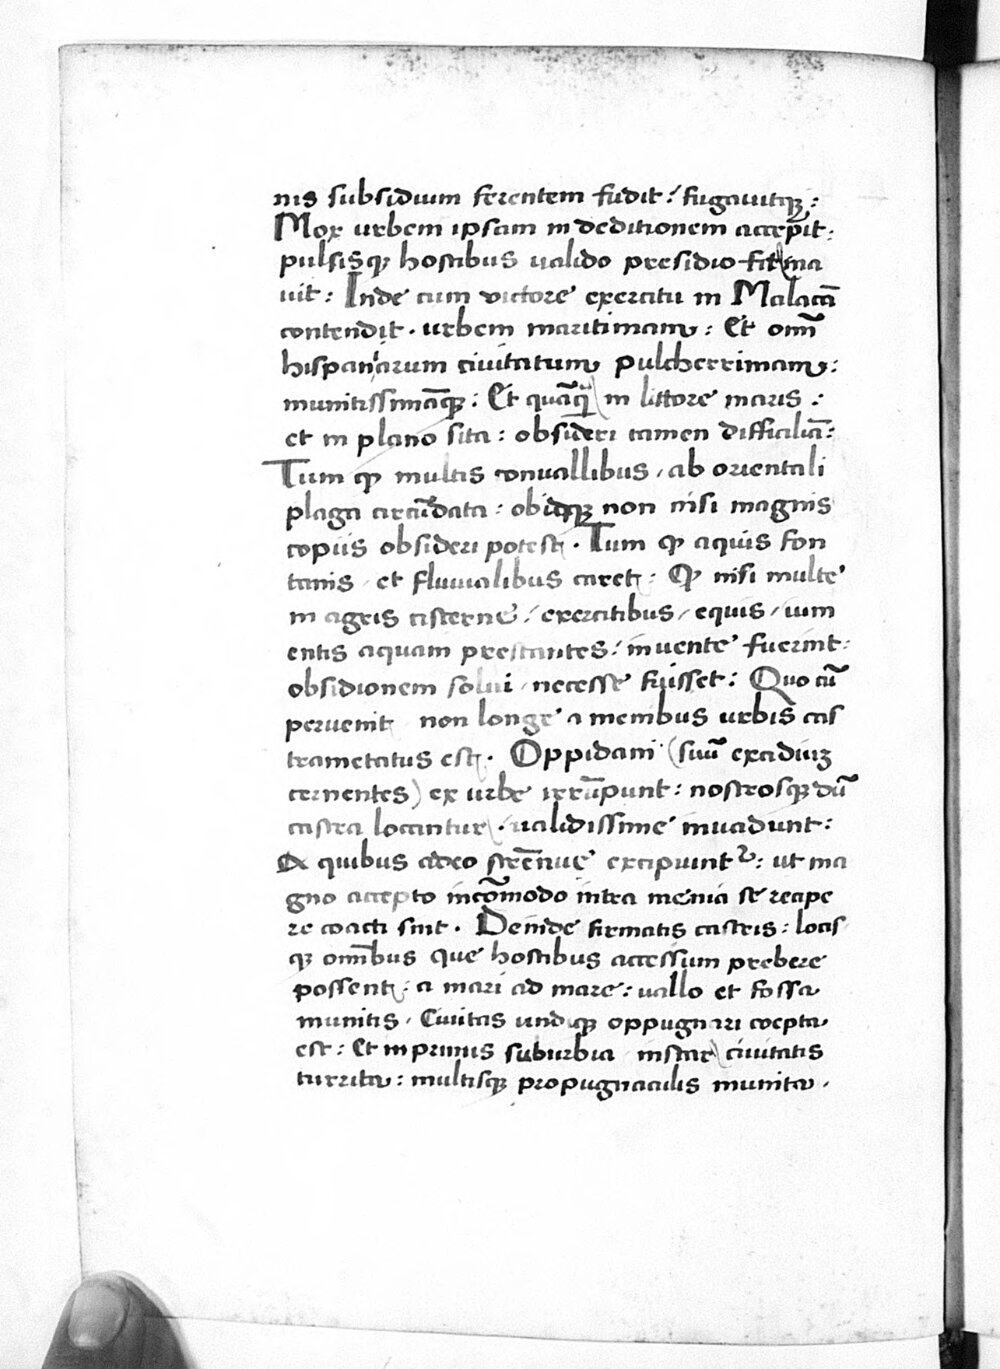 nis subsidium ferentem fudit: fugauitq;:
Mox urbem ipsam in deditionem accep̄it:
pulsisq; hostibus ualido presidio firma
uit: Inde cum victore exercitu in Malacā
contendit. urbem maritimam: Et omī
hispaniarum ciuitatum pulcherrimam:
munitissimāq;: Et quāq̄ in littore maris:
et in plano sita: obsideri tamen difficilīa:
Tum ꝙ multis conuallibus, ab orientali
plaga circūdata: obidq; non nisi magnis
copiis obsideri potest. Tum ꝙ aquis fon
tanis, et fluuialibus caret: Ꝙ nisi multe
in agris cisterne, exercitibus, equis, ium
entis aquam prestantes: inuente fuerint:
obsidionem solui, necesse fuisset: Quo cū
peruenit, non longe a menibus urbis cas
trametatus est. Oppidani (suū excidiuꝫ
cernentes) ex urbe irrūpunt: nostrosq; dū
castra locantur, ualidissime inuadunt:
A quibus adeo strēnue excipiunt᷑: ut ma
gno accepto incōmodo intra menia se recipe
re coacti sint. Deinde firmatis castris: locis
q; omībus que hostibus accessum prebere
possent: a mari ad mare: uallo et fossa
munitis. Ciuitas undiq; oppugnari coepta
est: Et in primis suburbia instar ciuitatis
turrita: multisq; propugnaculis munita.